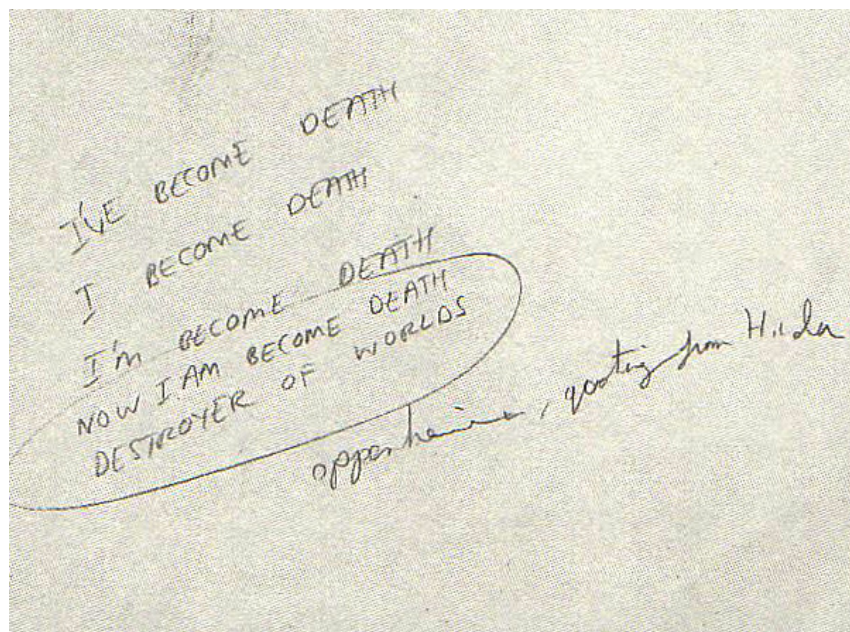 I'VE BECOME DEATH
I BECOME DEATH
I'M BECOME DEATH
NOW I AM BECOME DEATH
DESTROYER OF WORLDS
, quoting from